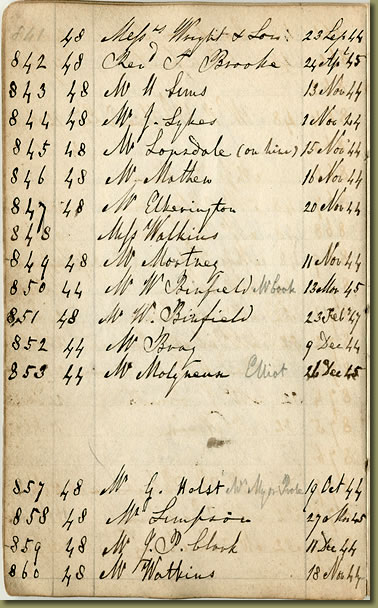 841 48 Mess.rs Wright & Son: 23 Sep 44
842 48 Rev.d T Brooke 24 Ap.l 45
843 48 Mr H Sims 13 Nov 44
844 48 Mr J. Sykes 1 Nov 44
845 48 Mr Lonsdale (on hire) 15 Nov 44
846 48 Mr Mathew 16 Nov 44
847 48 Mr Etherington 20 Nov 44
848 Mess Watkins
849 48 Mr Mortney 11 Nov 44
850 44 Mr W Binfield 13 Nov 45
851 48 Mr W. Binfield 23 Feb 47
852 44 Mr Boag 9 Dec 44
853 44 Mr Molyneux Elliot 26 Dec 45
857 48 Mr G. Holst 19 Oct 44
858 48 Mr Simpson 27 Mar 45
859 48 Mr J. P. Clark 11 Dec 44
860 48 Mr Watkins 18 Nov 44